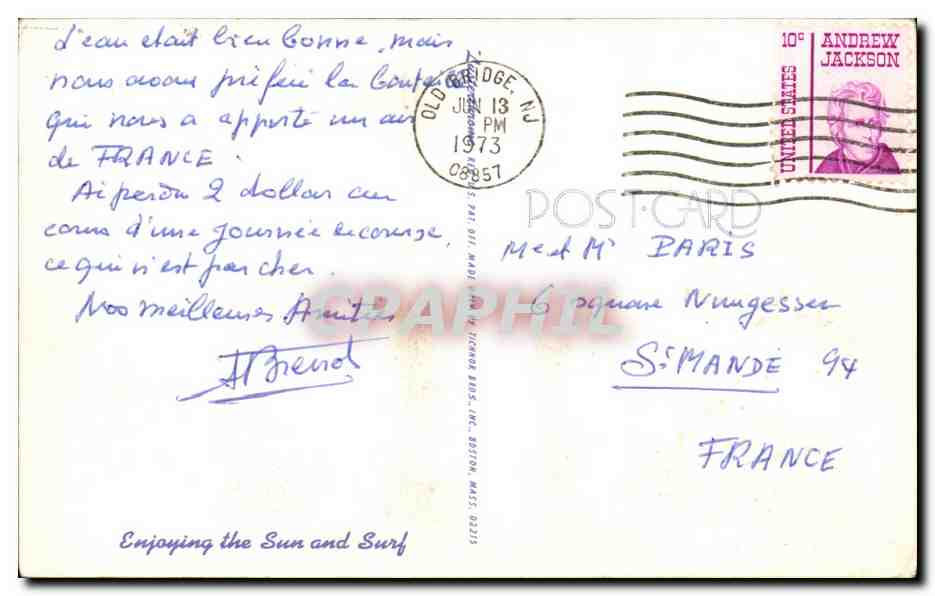 L'eau était bien bonne, mais
nous avons préféré la
qui nous a apporté un air
de FRANCE.
Ai perdu 2 dollar au
cours d'une journée
ce qui n'est pas cher.
Nos meilleures Amitiés
Enjoying the Sun and Surf
REG. U.S. PAT. OFF. MADE ONLY BY TICHNOR BROS., INC., BOSTON, MASS. 02215
OLD BRIDGE, NJ
JUN 13
PM
1973
08857
10c
UNITED STATES
ANDREW
JACKSON
POST CARD
CPAPHIL
M et Mr PARIS
6 square Nungesser
St MANDE 94
FRANCE